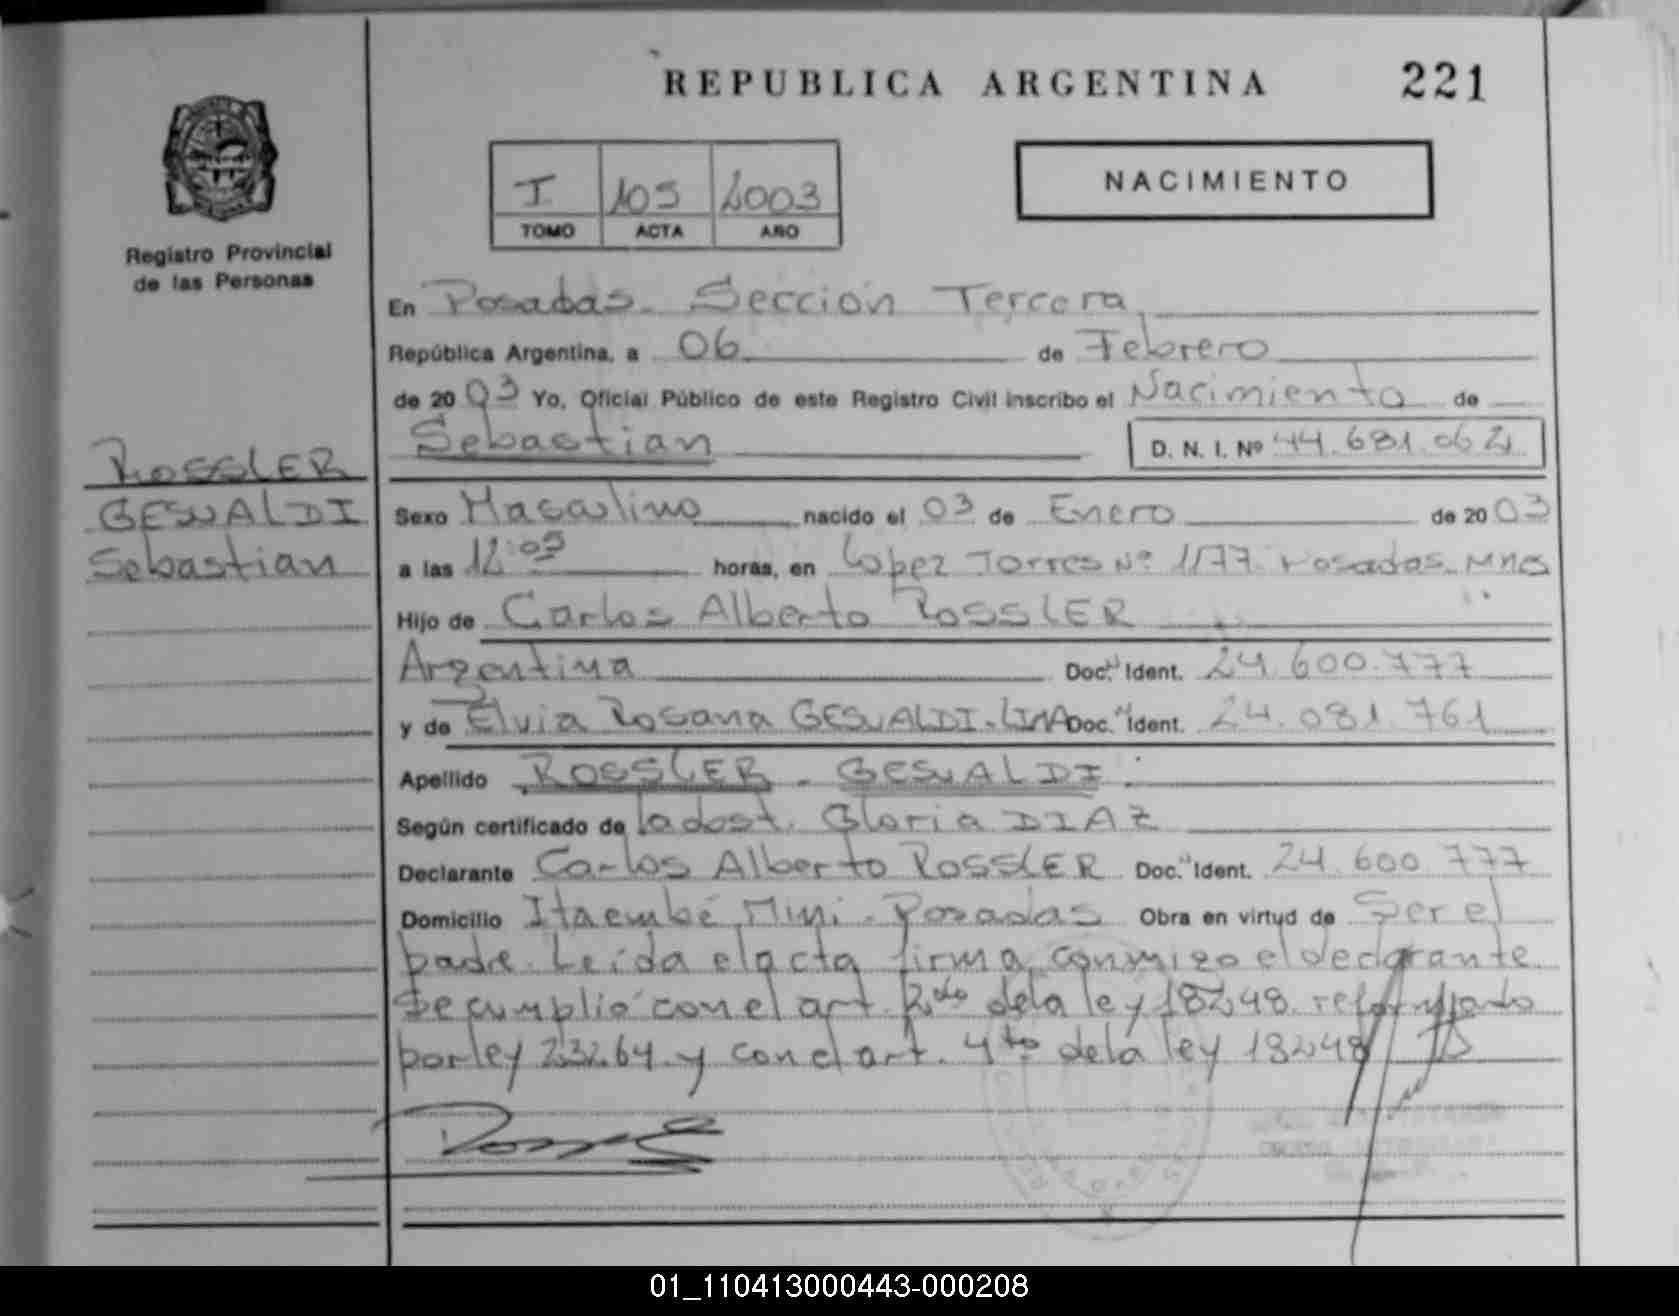 REPUBLICA ARGENTINA 221
I 105 2003
TOMO ACTA AÑO
NACIMIENTO
Registro Provincial
de las Personas
ROSSLER
GESUALDI
Sebastian
En Posadas. Sección Tercera
República Argentina, a 06 de Febrero
de 2003 Yo, Oficial Público de este Registro Civil inscribo el Nacimiento de
Sebastian D. N. I. Nº 44.681.062
Sexo Masculino nacido el 03 de Enero de 2003
a las 12:05 horas, en Lopez Torres Nº 1177. Posadas. Mnes
Hijo de Carlos Alberto ROSSLER
Argentina Doc. Ident. 24.600.777
y de Elvia Rosana GESUALDI. Doc. Ident. 24.081.761
Apellido ROSSLER - GESUALDI
Según certificado de la obst. Gloria DIAZ
Declarante Carlos Alberto ROSSLER Doc. Ident. 24.600.777
Domicilio Itaembé Mini - Posadas Obra en virtud de Ser el
padre. Leída el acta firma conmigo el declarante.
Se cumplió con el art. 2do de la ley 18248 reformado
por ley 23264 y con el art. 4to de la ley 18248
01_110413000443-000208